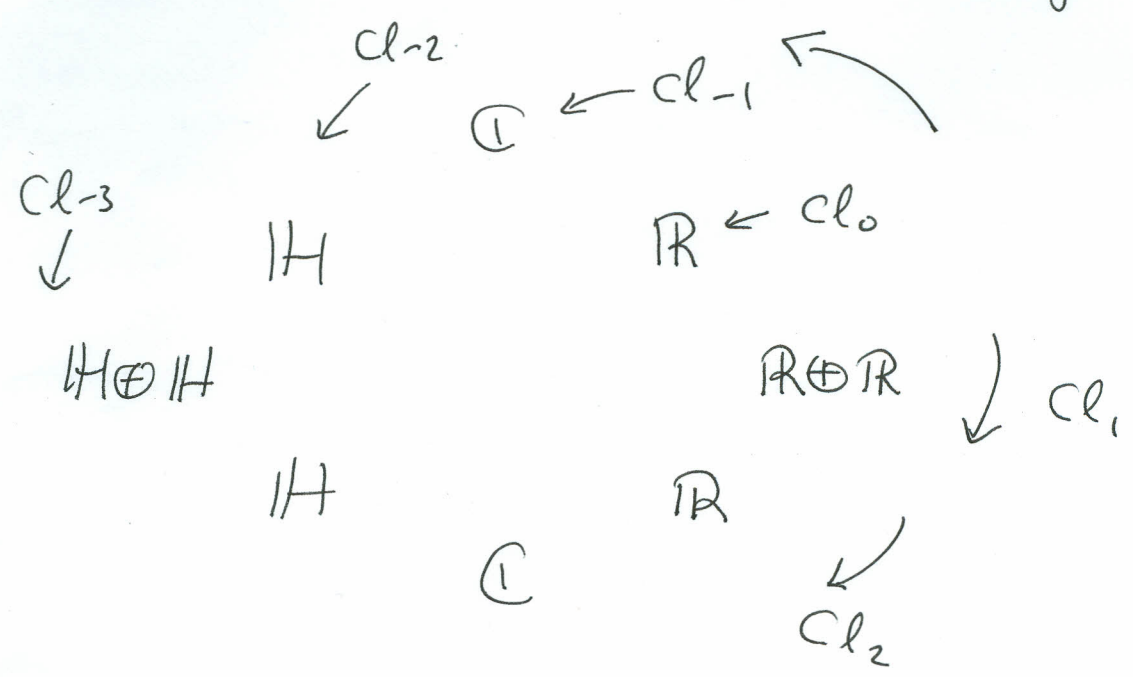 Cl-2
ℂ ← Cl-1
Cl-3
ℍ
ℝ ← Cl₀
ℍ⊕ℍ
ℝ⊕ℝ
Cl₁
ℍ
ℝ
ℂ
Cl₂